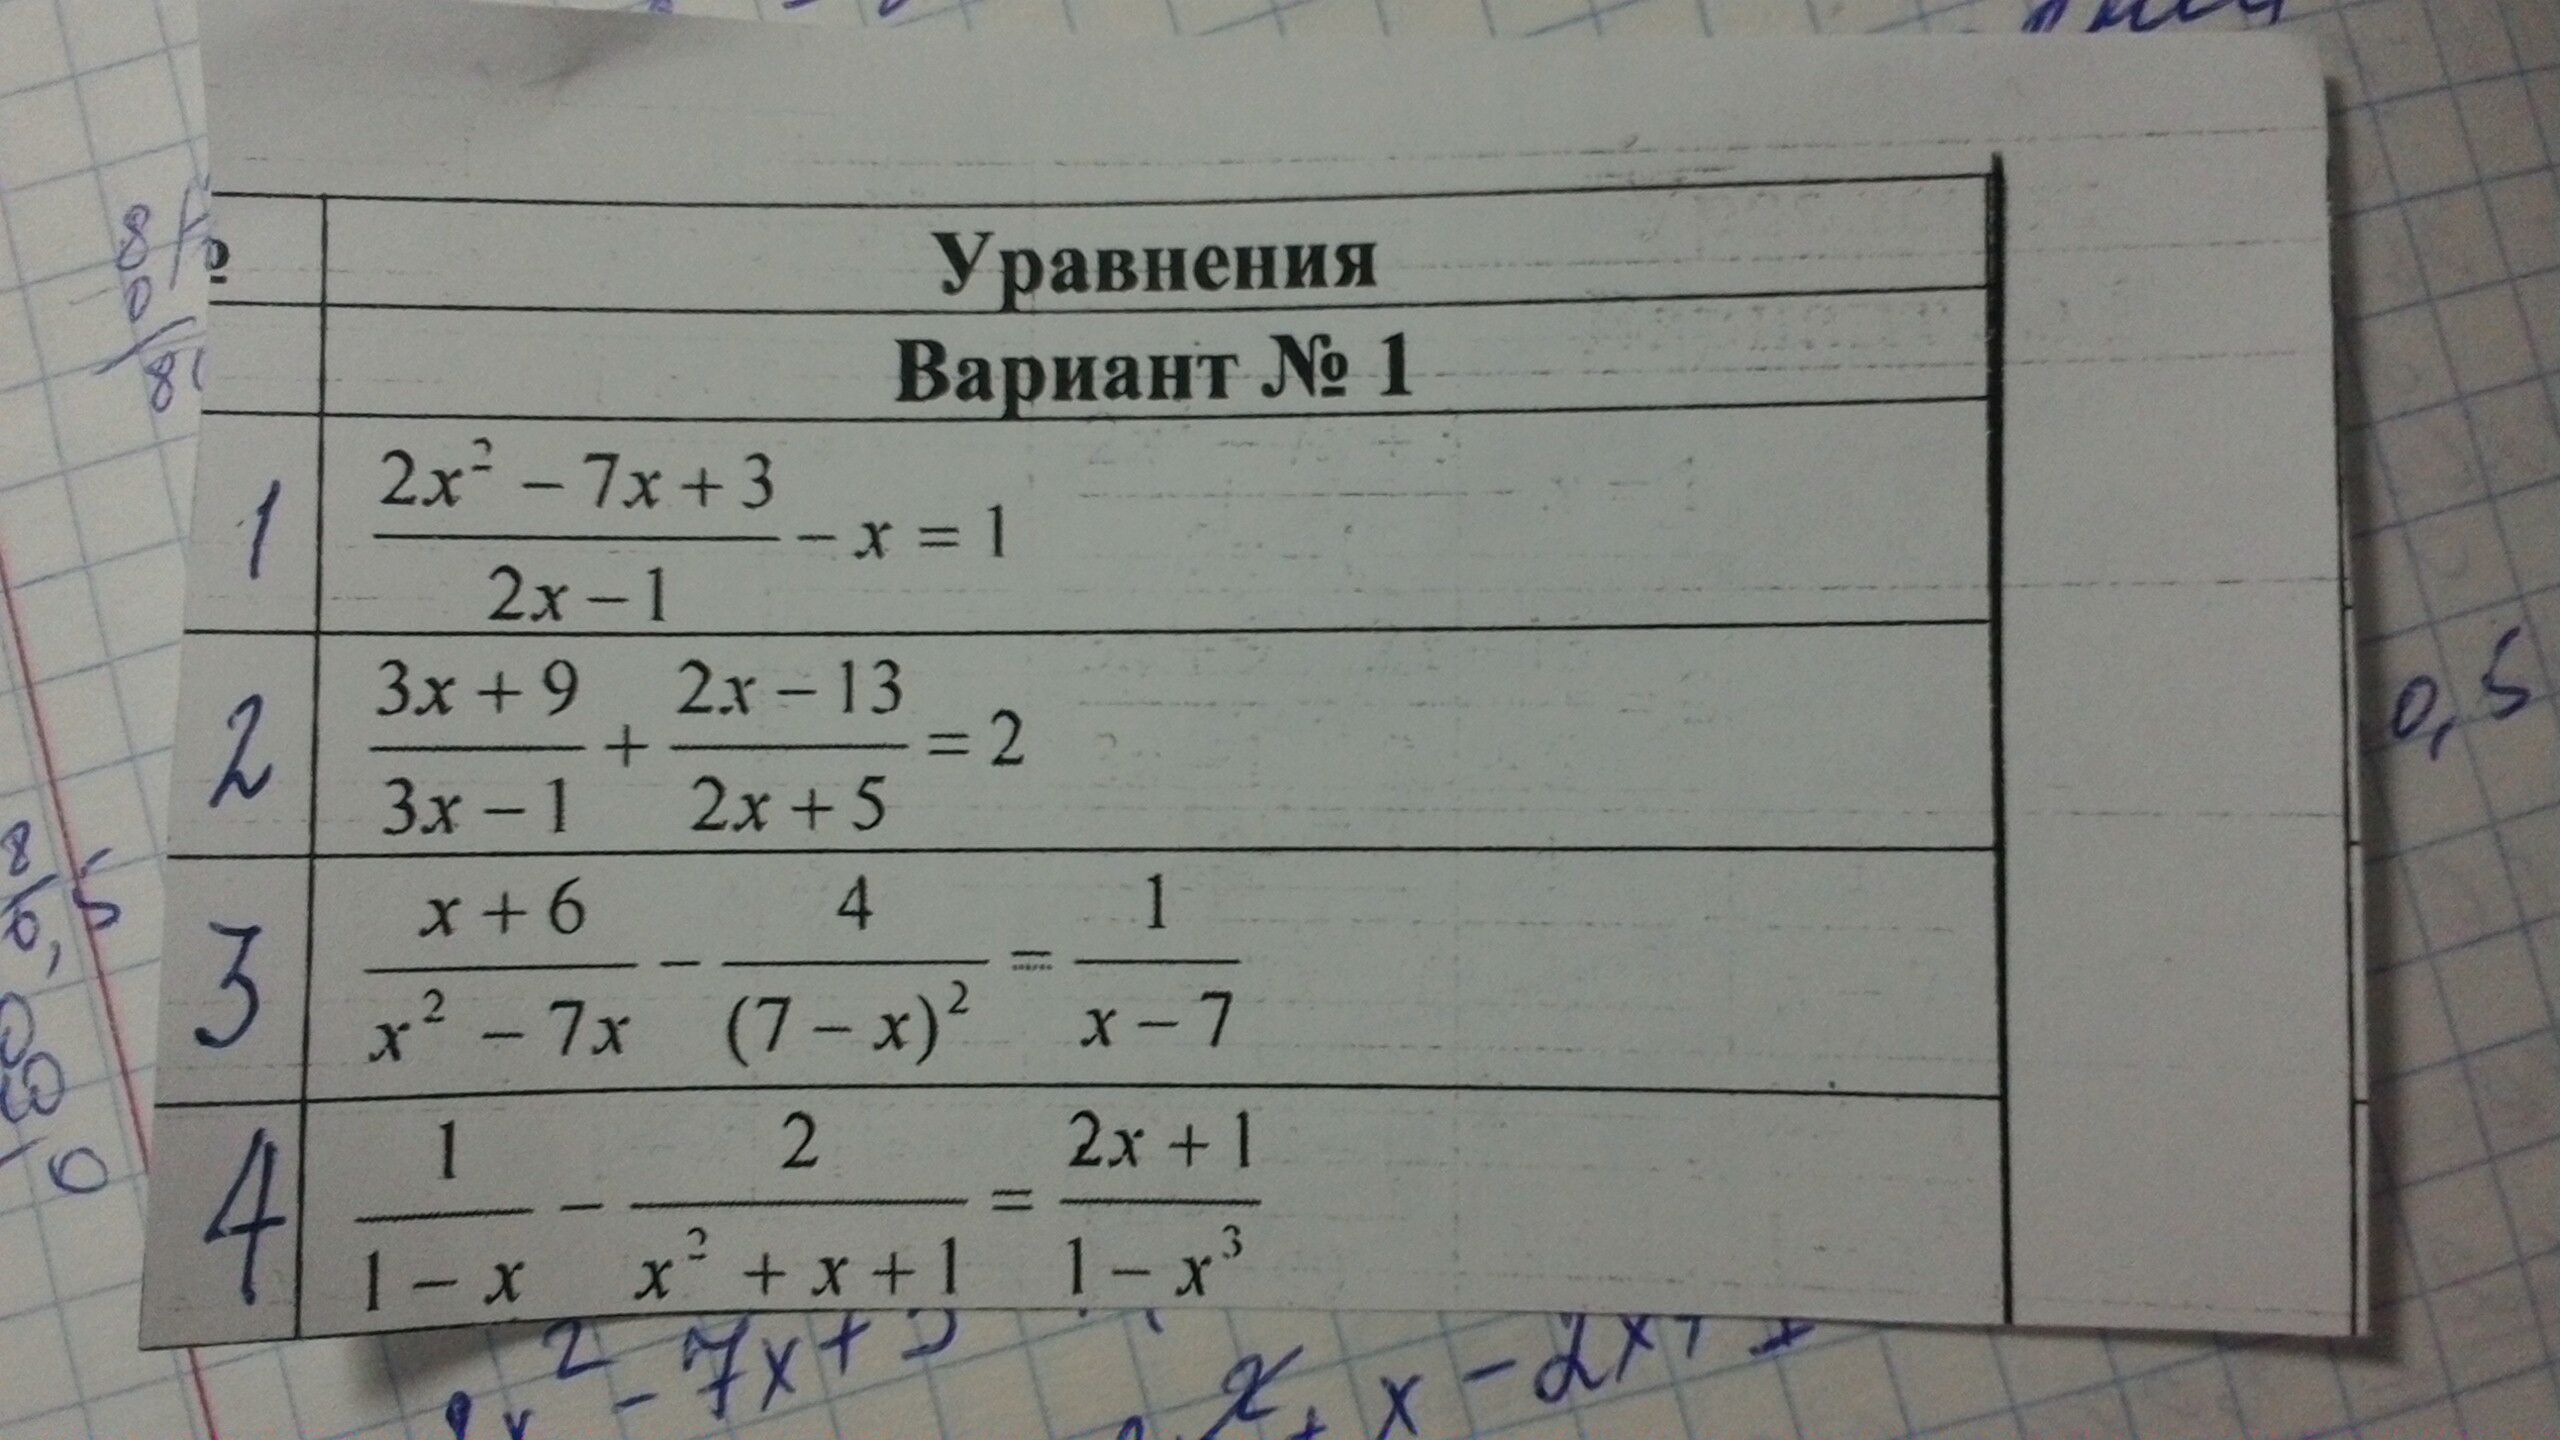 Уравнения
Вариант № 1
1 (2x² − 7x + 3)/(2x − 1) − x = 1
2 (3x + 9)/(3x − 1) + (2x − 13)/(2x + 5) = 2
3 (x + 6)/(x² − 7x) − 4/(7 − x)² = 1/(x − 7)
4 1/(1 − x) − 2/(x² + x + 1) = (2x + 1)/(1 − x³)
0,5